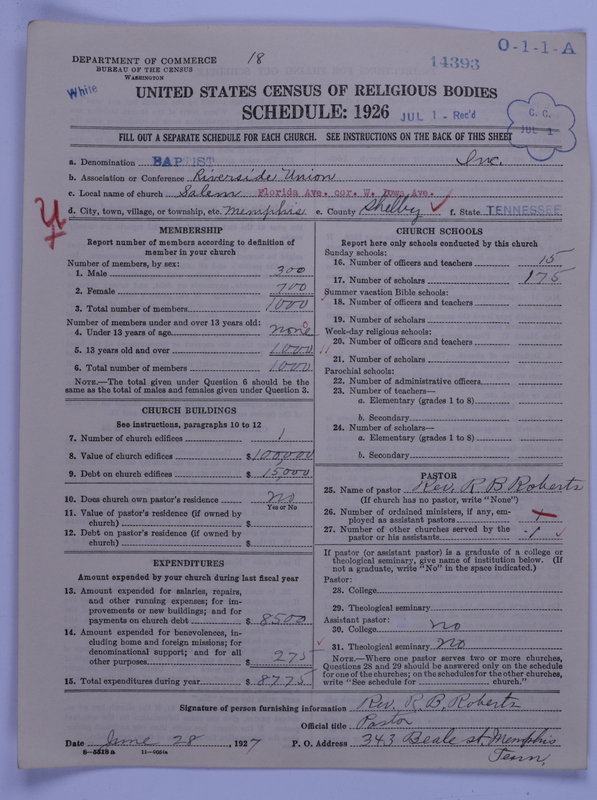 DEPARTMENT OF COMMERCE
BUREAU OF THE CENSUS
WASHINGTON
18
14393
O-1-1-A
White
UNITED STATES CENSUS OF RELIGIOUS BODIES
SCHEDULE: 1926
JUL 1 - Rec'd
C. C.
JUL 1
FILL OUT A SEPARATE SCHEDULE FOR EACH CHURCH. SEE INSTRUCTIONS ON THE BACK OF THIS SHEET
a. Denomination BAPTIST Inc.
b. Association or Conference Riverside Union
c. Local name of church Salem Florida Ave. cor. W. Iowa Ave.
d. City, town, village, or township, etc. Memphis e. County Shelby f. State TENNESSEE
MEMBERSHIP
Report number of members according to definition of
member in your church
Number of members, by sex:
1. Male 300
2. Female 700
3. Total number of members 1000
Number of members under and over 13 years old:
4. Under 13 years of age none
5. 13 years old and over 1000
6. Total number of members 1000
NOTE.—The total given under Question 6 should be the
same as the total of males and females given under Question 3.
CHURCH BUILDINGS
See instructions, paragraphs 10 to 12
7. Number of church edifices 1
8. Value of church edifices $100,000
9. Debt on church edifices $15,000
10. Does church own pastor's residence no
Yes or No
11. Value of pastor's residence (if owned by
church) $
12. Debt on pastor's residence (if owned by
church) $
EXPENDITURES
Amount expended by your church during last fiscal year
13. Amount expended for salaries, repairs,
and other running expenses; for im-
provements or new buildings; and for
payments on church debt $8500
14. Amount expended for benevolences, in-
cluding home and foreign missions; for
denominational support; and for all
other purposes $275
15. Total expenditures during year $8775
CHURCH SCHOOLS
Report here only schools conducted by this church
Sunday schools:
16. Number of officers and teachers 15
17. Number of scholars 175
Summer vacation Bible schools:
18. Number of officers and teachers
19. Number of scholars
Week-day religious schools:
20. Number of officers and teachers
21. Number of scholars
Parochial schools:
22. Number of administrative officers
23. Number of teachers—
a. Elementary (grades 1 to 8)
b. Secondary
24. Number of scholars—
a. Elementary (grades 1 to 8)
b. Secondary
PASTOR
25. Name of pastor Rev. R B Roberts
(If church has no pastor, write "None")
26. Number of ordained ministers, if any, em-
ployed as assistant pastors
27. Number of other churches served by the
pastor or his assistants 1
If pastor (or assistant pastor) is a graduate of a college or
theological seminary, give name of institution below. (If
not a graduate, write "No" in the space indicated.)
Pastor:
28. College
29. Theological seminary
Assistant pastor:
30. College no
31. Theological seminary no
NOTE.—Where one pastor serves two or more churches,
Questions 28 and 29 should be answered only on the schedule
for one of the churches; on the schedules for the other churches,
write "See schedule for church."
Signature of person furnishing information Rev. R. B. Roberts
Official title Pastor
Date June 28, 1927 P. O. Address 343 Beale st. Memphis
Tenn.